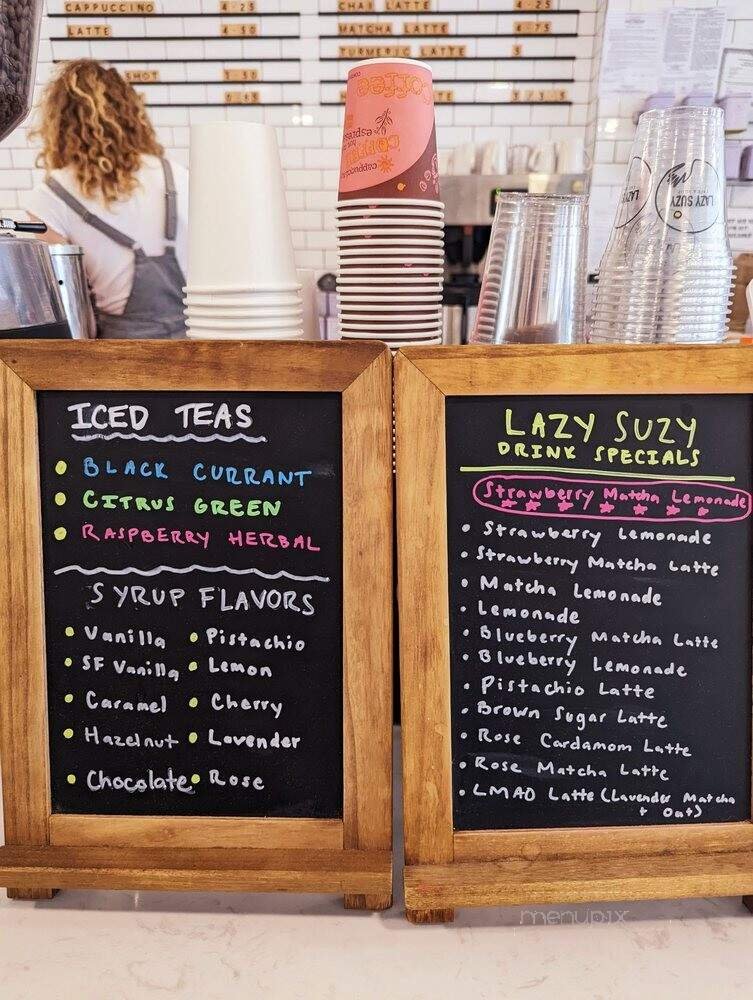 CAPPUCCINO 4-25
LATTE 4-50
SHOT 1-50
0-63
CHAI LATTE 4-25
MATCHA LATTE 4-75
TURMERIC LATTE 5
coffee
COFFEE
espresso
cappuccino
LAZY SUZY
ICED TEAS
• BLACK CURRANT
• CITRUS GREEN
• RASPBERRY HERBAL
SYRUP FLAVORS
• Vanilla • Pistachio
• SF Vanilla • Lemon
• Caramel • Cherry
• Hazelnut • Lavender
• Chocolate • Rose
LAZY SUZY
DRINK SPECIALS
Strawberry Matcha Lemonade
• Strawberry Lemonade
• Strawberry Matcha Latte
• Matcha Lemonade
• Lemonade
• Blueberry Matcha Latte
• Blueberry Lemonade
• Pistachio Latte
• Brown Sugar Latte
• Rose Cardamom Latte
• Rose Matcha Latte
• LMAO Latte (Lavender Matcha
+ Oat)
menupix